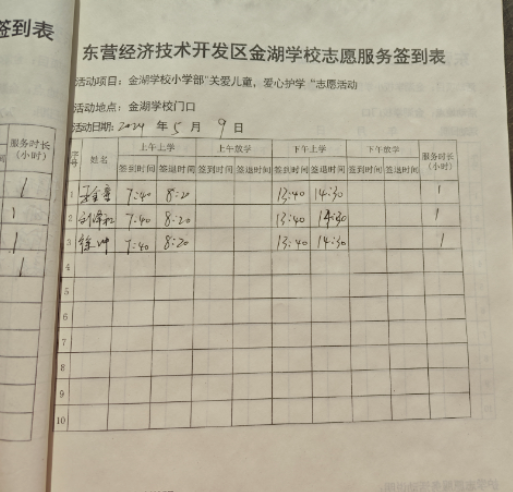 签到表
东营经济技术开发区金湖学校志愿服务签到表
活动项目：金湖学校小学部"关爱儿童，爱心护学"志愿活动
活动地点：金湖学校门口
活动日期：2024 年 5 月 9 日
服务时长
(小时)
1
1
1
1
序号 姓名 上午上学 上午放学 下午上学 下午放学 服务时长(小时)
签到时间 签退时间 签到时间 签退时间 签到时间 签退时间 签到时间 签退时间
1 7:40 8:20 13:40 14:30 1
2 7:40 8:20 13:40 14:30 1
3 徐坤 7:40 8:20 13:40 14:30 1
4
5
6
7
8
9
10